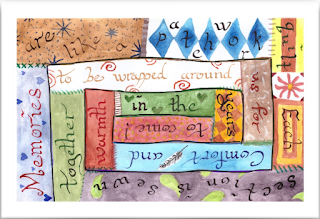 Memories
are like a
patchwork
quilt
Each
section is sewn
together
to be wrapped around
us for
Comfort and
warmth
in the
years
to come!